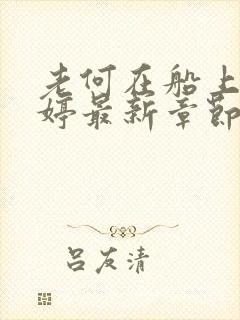 老何在船上
婷最新章节
吕友清